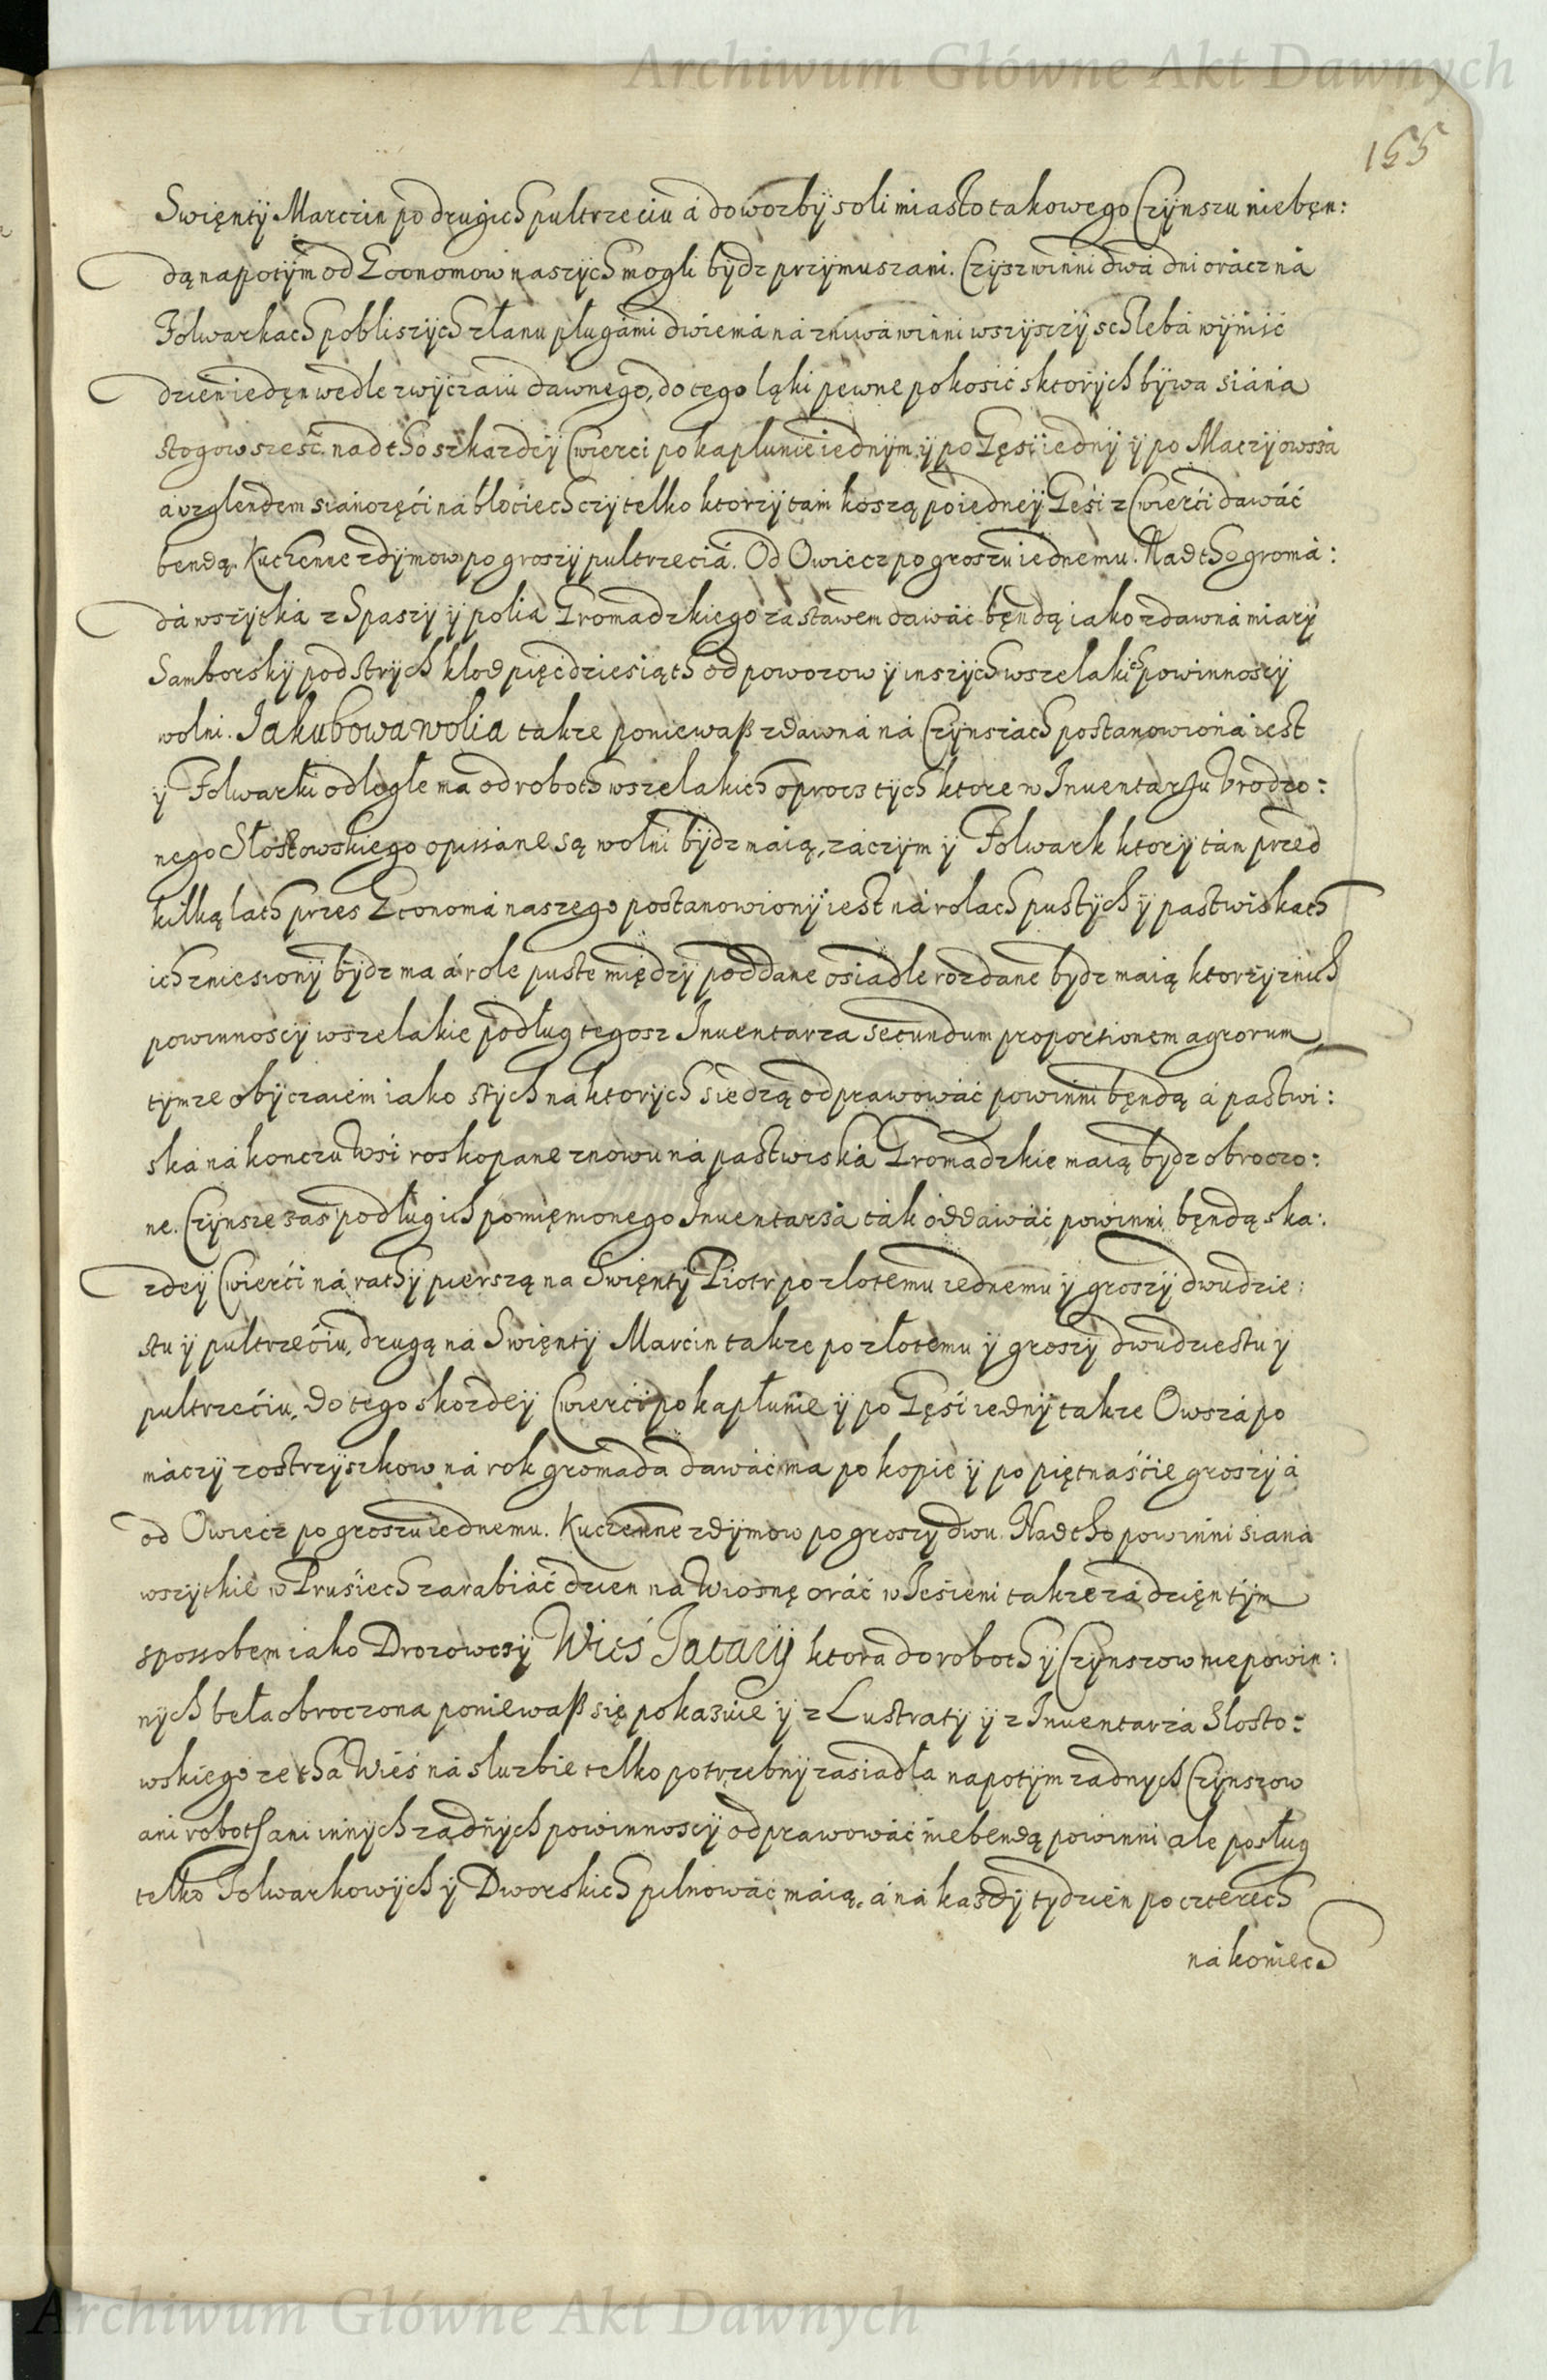 Archiwum Główne Akt Dawnych
155
Swięnty Marczin po drugich pultrzeciu á dowozby soli miasto takowego Czynszu niebęn:
dą napotym od Economow naszych mogli bydz przymuszani. Czysz winni dwá dni orácz ná
Folwarkach pobliszych złanu pługámi dwiemá ná znuwá winni wszysczy schlebá wyniść
dzien iedęn wedle zwyczaiu dawnego, do tego łąki pewne pokosić sktorych bywa siáná
stogow sześć. nad tho szkazdey Cwierci po kapłunie iednym, y po Gęsi iedny y po Maczy owssá
á wzglendem siánozęći ná błoćiech czy telko ktorzy tám koszą po iedney Gęśi z Cwierći dawáć
bendą. Kuchenne zdymow po groszy pultrzeciá. Od Owiecz po groszu iednemu. Nad tho gromá:
dá wszytká z Spaszy y poliá Gromadzkiego zastawem dawáć będą iako zdawná miary
Samborsky pod strych kłod pięćdziesiąth od powozow y inszych wszelakich powinnosczy
wolni. Jakubowa wolia takze poniewaß zdawná ná Czynszách postanowioná iest
y Folwarki odległe ma od roboth wszelakich oprocz tych ktore w Inventarzu Vrodzo:
nego Słostowskiego opissane są wolni bydz máią, záczym y Folwark ktory tám przed
kilką lath przes Economá naszego postanowiony iest ná rolach pustych y pastwiskach
ich zniesiony bydz ma á role puste między poddane osiadłe rozdane bydz maią ktorzy znich
powinnosczy wszelakie podług tegosz Inuentarza secundum proportionem agrorum
tymze obyczaiem iako stych ná ktorych siedzą odprawowáć powinni będą á pastwi:
ská ná konczu Wsi roskopane znowu ná pastwiská Gromadzkie maią bydz obroczo:
ne. Czynsze zas podług ich pomięnionego Inuentarzá ták oddawáć powinni będą ska:
zdey Cwierći ná rathy pierszą na Swięnty Piotr po złotemu iednemu y groszy dwudzie:
stu y pultrzećiu, drugą na Swięnty Marćin takze po złotemu y groszy dwudziestu y
pultrzećiu, do tego skozdey Cwierći po kapłunie y po Gęśi iedny takze Owszá po
máczy zostrzyszkow ná rok gromada dawáć ma po kopie y po piętnaśćie groszy á
od Owiecz po groszu iednemu. Kuczenne zdymow po groszy dwu. Nad tho powinni siana
wszytkie w Prusiech zarabiáć dzien na Wiosnę oráć w Iesieni takze zá dzięn tym
sposobem iako Drozowczy Wieś Tatary ktora do roboth y Czynszow niepowin:
nych beła obroczona poniewaß się pokazuie y z Lustraty y z Inuentarzá Słosto:
wskiego ze tha Wieś ná słuzbie telko potrzebny zasiadła napotym zadnych Czynszow
ani roboth ani innych ządnych powinnosczy odprawowáć niebendą powinni ale posług
telko Folwarkowych y Dworskich pilnowáć máią. á ná kazdy tydzień po czterech
ná koniech
Archiwum Główne Akt Dawnych